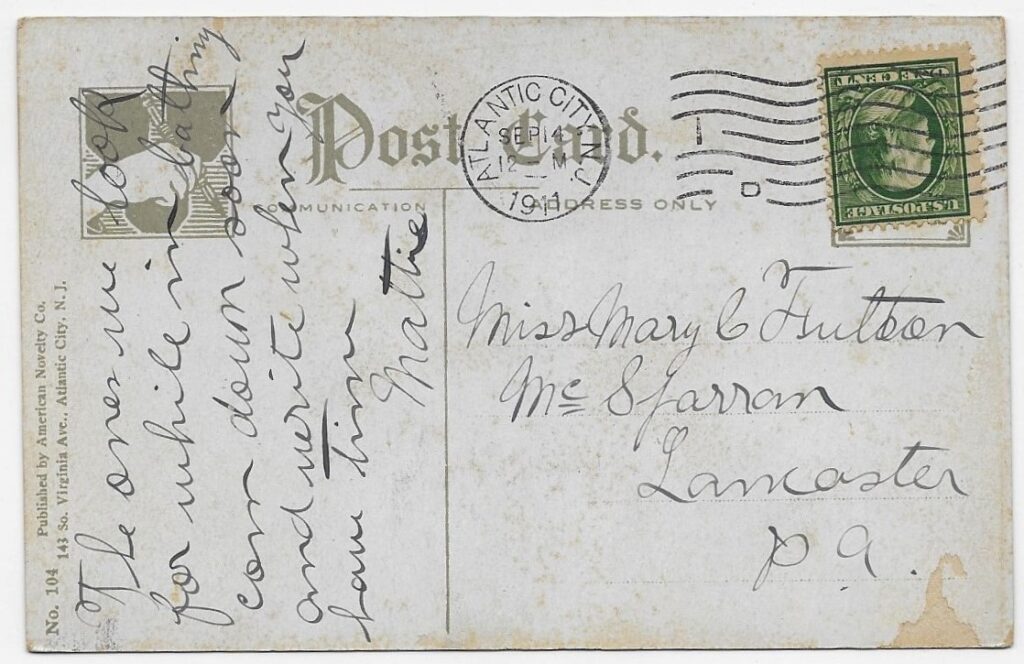 Post Card.
COMMUNICATION
ADDRESS ONLY
ATLANTIC CITY, N.J.
SEP 14
12 M
1911
1
D
U.S. POSTAGE
ONE CENT
No. 104
Published by American Novelty Co.
143 So. Virginia Ave., Atlantic City, N. J.
The ones we look
for while in bathing
com down soon
and write when you
hav time
Mattie
Miss Mary C Fulton
Mc Sparran
Lancaster
Pa.